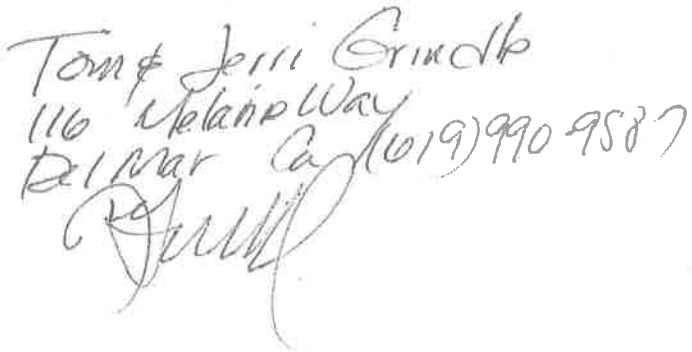 Tom & Jerri Grindle
116 Melanie Way
Del Mar Ca (619) 990-9587